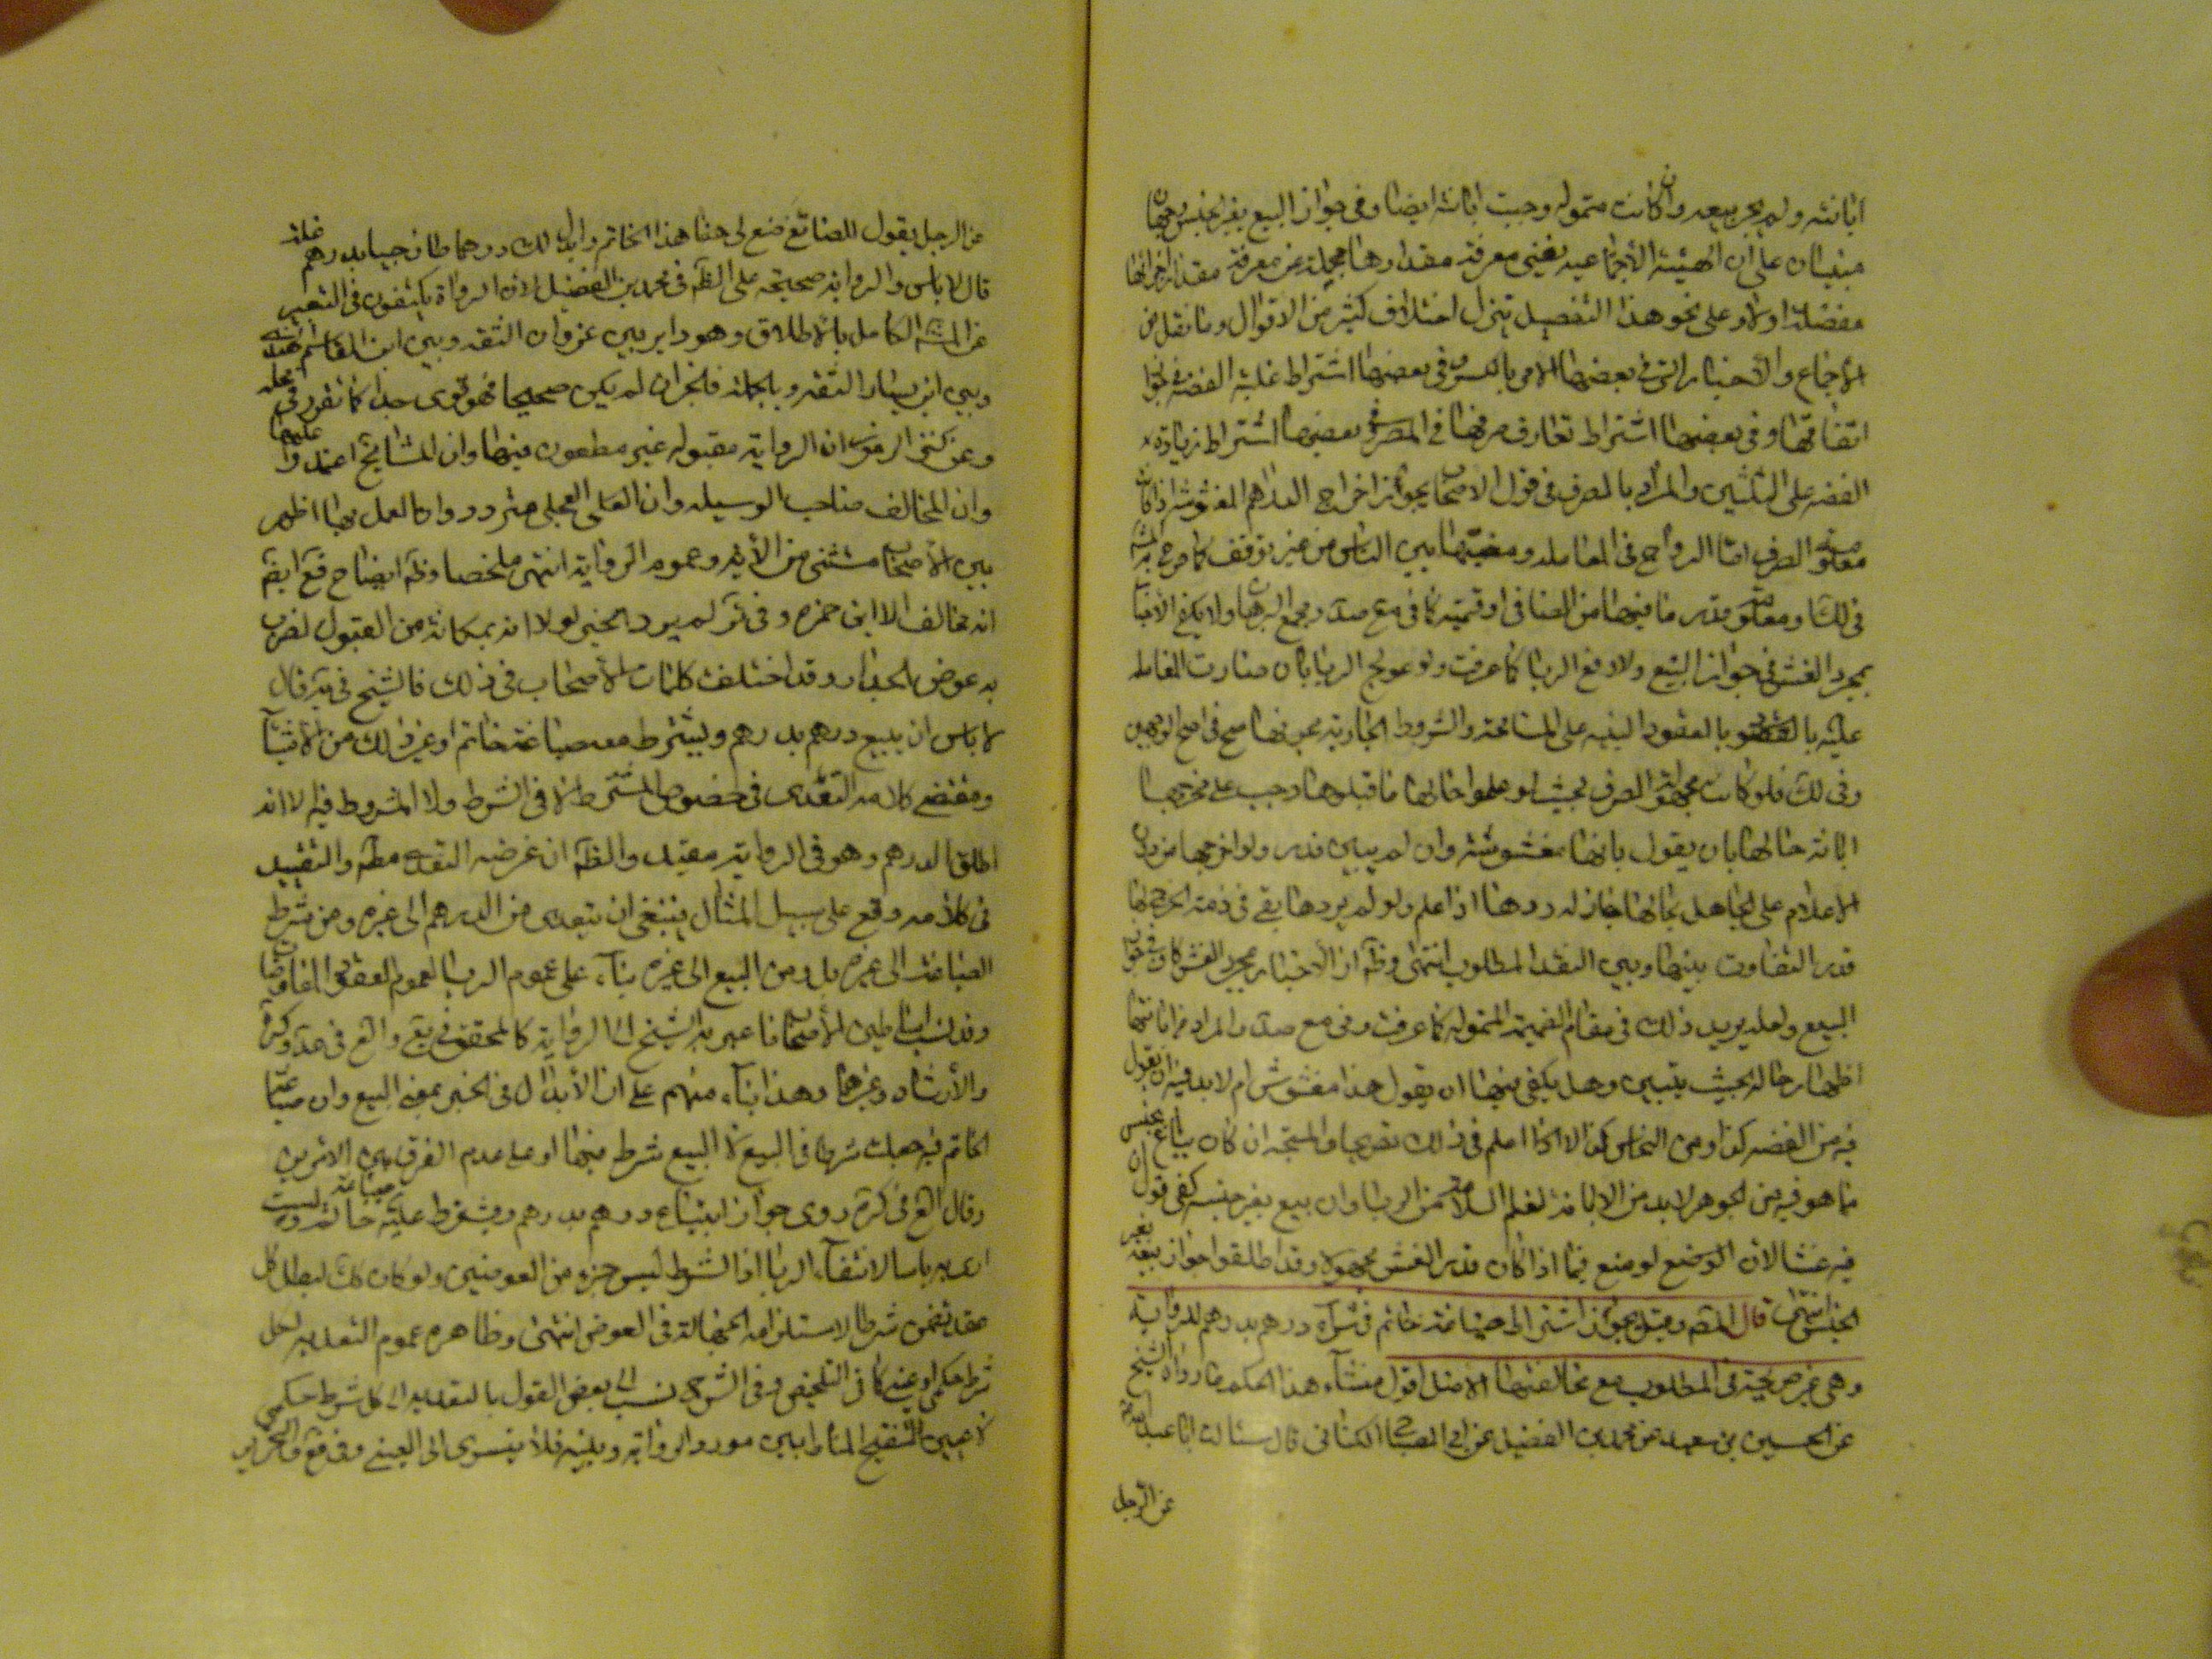 ابانته ولم يجز بيعه وان كانت متموله وجبت ابانته ايضا وفي جواز البيع بغير الجنس وجهان
مبنيان على ان الهيئة الاجتماعيه يغني معرفة مقدارها مجملة عن معرفة مقدار اجزائها
مفصلة اولا وعلى نحو هذا التفصيل ينزل اختلاف كثير من الاقوال وما نقل من
الاجماع والاخبار التي في بعضها الامر بالكسر وفي بعضها اشتراط غلبة الفضه في جواز
انفاقها وفي بعضها اشتراط تعارف صرفها في المصر وفي بعضها اشتراط زيادة
الفضه على الثلثين والمراد بالصرف في قول الاصحاب يجوز اخراج الدراهم المغشوشه اذا كانت
معلومة الصرف اما الرواج في المعاملة ومضيها بين الناس من غير توقف كما صرح به
في لك او معلومية قدر ما فيها من الصافي او قيمته كما في مع صد ومجمع البرهان ولا يكفي الاخبار
بمجرد الغش في جواز البيع ولا دفع الربا كما عرفت ولو عولج الربا بان صارت المعامله
عليه بالعقود المبنيه على المسامحة والشروط الجاريه مجراها صح في اصح الوجهين
وفي لك فلو كانت مجهولة الصرف بحيث لو علموا حالها ما قبلوها وجب على مخرجها
ابانة حالها بان يقول بانها مغشوشه وان لم يبين قدره ولو اخرجها من دون
الاعلام على الجاهل بحالها جاز له ردها اذا علم ولو لم يردها بقي في ذمة المخرج لها
قدر التفاوت بينها وبين النقد المطلوب انتهى وظه ان الاخبار بمجرد الغش كاف في جواز
البيع ولعله يريد ذلك في مقام الضميمة المتموله كما عرفت وفي مع صد والمراد من ابانتها
اظهار حاله بحيث يتبين وهل يكفي فيها ان يقول هذا مغشوش ام لا بد فيه ان يقول
فيه من الفضه كذا ومن النحاس كذا لا اعلم في ذلك تصريحا والمتجه ان كان يباع بجنس
ما هو فيه من الجوهر لا بد من الابانة لعلم السلامة من الربا وان بيع بغير جنسه كفى قول ان
فيه غشا لان الوضع لو منع فيما اذا كان قدر الغش مجهولا وقد اطلقوا جواز بيعه بغير
الجنس انتهى قال المصنف وقيل يجوز اشتراط صياغة خاتم في شراء درهم بدرهم للرواية
وهي غير صريحة في المطلوب مع مخالفتها الاصل اقول منشأ هذا الحكم ما رواه الشيخ
عن الحسين بن سعيد عن محمد بن الفضيل عن ابي الصباح الكناني قال سئلت ابا عبد الله
عن الرجل
عن الرجل يقول للصائغ صنع لي هذا الخاتم وابدل لك درهما طازجيا بدرهم غلة
قال لا باس والرواية صحيحة على الظه في محمد بن الفضيل لان الرواة يكتفون في التعبير
عن المشه الكامل بالاطلاق وهو داير بين غزوان الثقه وبين ابن القاسم
وبين ابن يسار الثقه وبالجملة فالخبر ان لم يكن صحيحا فهو قوي جدا كما تقرر في محله
وعن كشف الرموز ان الرواية مقبوله غير مطعون فيها وان المشايخ اعتمدوا عليها
وان المخالف صاحب الوسيله وان العلي العجلي متردد وان العمل بها اظهر
بين الاصحاب مستثنى من الاية وعموم الرواية انتهى ملخصا وظه ايضاح فع ايضا
انه مخالف الا ابن حمزه وفي ئر لم يرد الخبر لولا انه بمكانة من القبول لضرب
به عرض الجدار وقد اختلفت كلمات الاصحاب في ذلك فالشيخ في يه قال
لا باس ان يبيع درهم بدرهم ويشترط معه صياغة خاتم او غير ذلك من الاشياء
ومقتضى كلامه التعدي في خصوص المشترط لا في الشرط ولا المشروط فيه الا انه
اطلق الدرهم وهو في الرواية مقيد والظه ان غرضه التعدي مطه والتقييد
في كلامه وقع على سبيل المثال ينبغي ان يتعدى من الدرهم الى غيره ومن شرط
الصياغة الى غيره بل ومن البيع الى غيره بناء على عموم الربا لعموم العقود المعاوضات
وقد نسب اساطين الاصحاب ما عبر به الشيخ الى الرواية كالمحقق في يع والع في عد وكره
والارشاد وغيرها وهذا بناء منهم على ان الابدال في الخبر بمعنى البيع وان صياغة
الخاتم فيه جعلت شرطا في البيع لا البيع شرط فيها او على عدم الفرق بين الامرين
وقال الع في كره روى جواز ابتياع درهم بدرهم ويشترط عليه صياغة خاتم ولست
ارى به باسا لانتفاء الربا اذ الشرط ليس جزء من العوضين ولو كان كك لبطل كل
عقد تضمن شرطا لاستلزامه الجهالة في العوض انتهى وظاهره عموم التعديه لكل
شرط حكمي او عيني كما في التلخيص وفي الشرح نسب الى بعض القول بالتعديه الى كل شرط حكمي
لا عيني لتنقيح المناط بين مورد الرواية وبينه فلا يتسرى الى العيني وفي قع والتحرير